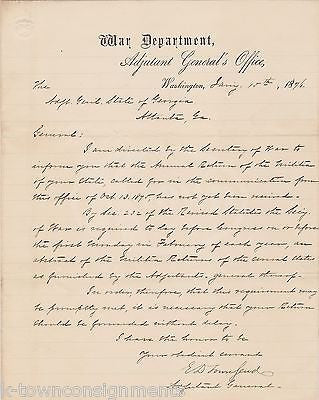 War Department,
Adjutant General's Office,
Washington, Jany. 15th, 1876.
The
Adjt. Genl. State of Georgia
Atlanta, Ga.
General:
I am directed by the Secretary of War to
inform you that the Annual Return of the Militia
of your State, called for in the communication from
this office of Oct. 13. 1875, has not yet been received.
By Sec. 232 of the Revised Statutes the Secy.
of War is required to lay before Congress on or before
the first Monday in February of each year, an
abstract of the Militia Returns of the several States
as furnished by the Adjutants general thereof.
In order, therefore, that this requirement may
be promptly met, it is necessary that your Return
should be forwarded without delay.
I have the honor to be
Your obedient servant
E D Townsend
Adjutant General.
k-townconsignments